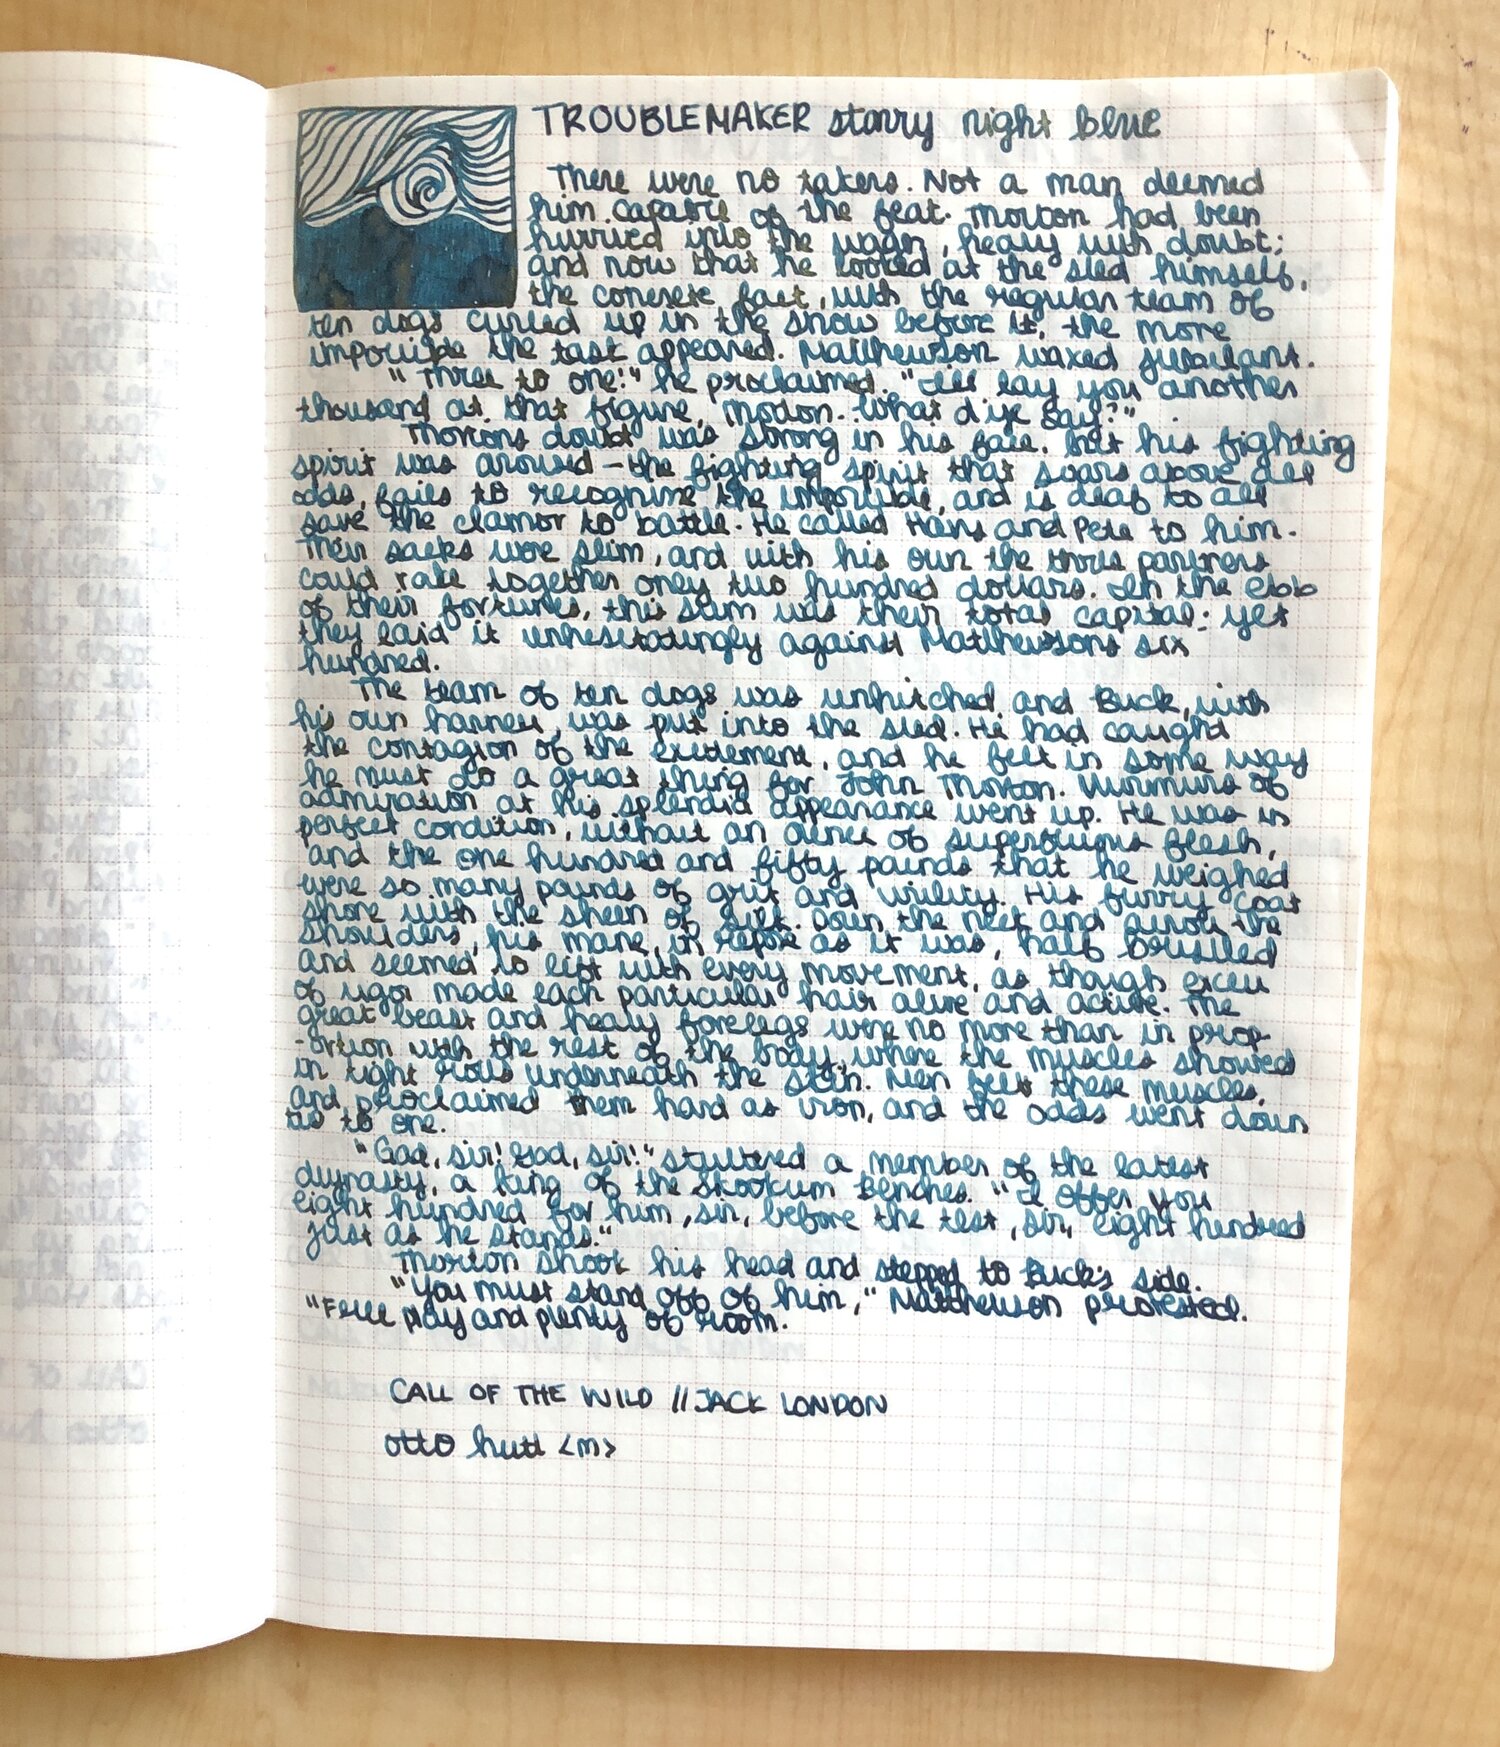 TROUBLEMAKER starry night blue
There were no takers. Not a man deemed
him capable of the feat. Thorton had been
hurried into the wager, heavy with doubt;
and now that he looked at the sled himself,
the concrete fact, with the regular team of
ten dogs curled up in the snow before it, the more
impossible the task appeared. Matthewson waxed jubilant.
"Three to one!" he proclaimed. "I'll lay you another
thousand at that figure, Thorton. What d'ye say?"
Thortons doubt was strong in his face, but his fighting
spirit was aroused - the fighting spirit that soars above all
odds, fails to recognize the impossible, and is deaf to all
save the clamor to battle. He called Hans and Pete to him.
Their sacks were slim, and with his own the three partners
could rake together only two hundred dollars. In the ebb
of their fortunes, this sum was their total capital; yet
they laid it unhesitatingly against Matthewsons six
hundred.
The team of ten dogs was unhitched, and Buck, with
his own harness, was put into the sled. He had caught
the contagion of the excitement, and he felt in some way
he must do a great thing for John Thorton. Murmurs of
admiration at his splendid appearance went up. He was in
perfect condition, without an ounce of superfluous flesh,
and the one hundred and fifty pounds that he weighed
were so many pounds of grit and virility. His furry coat
shone with the sheen of silk. Down the neck and across the
shoulders, his mane, in repose as it was, half bristled
and seemed to lift with every movement, as though excess
of vigor made each particular hair alive and active. The
great beast and heavy forelegs were no more than in prop-
-ortion with the rest of the body, where the muscles showed
in tight rolls underneath the skin. Men felt these muscles,
and proclaimed them hard as iron, and the odds went down
two to one.
"Gad, sir! Gad, sir!" stuttered a member of the latest
dynasty, a king of the Skookum Benches. "I offer you
eight hundred for him, sir, before the test, sir, eight hundred
just as he stands."
Thorton shook his head and stepped to Buck's side.
"You must stand off of him," Matthewson protested.
"Free play and plenty of room.
CALL OF THE WILD // JACK LONDON
otto hutt <m>